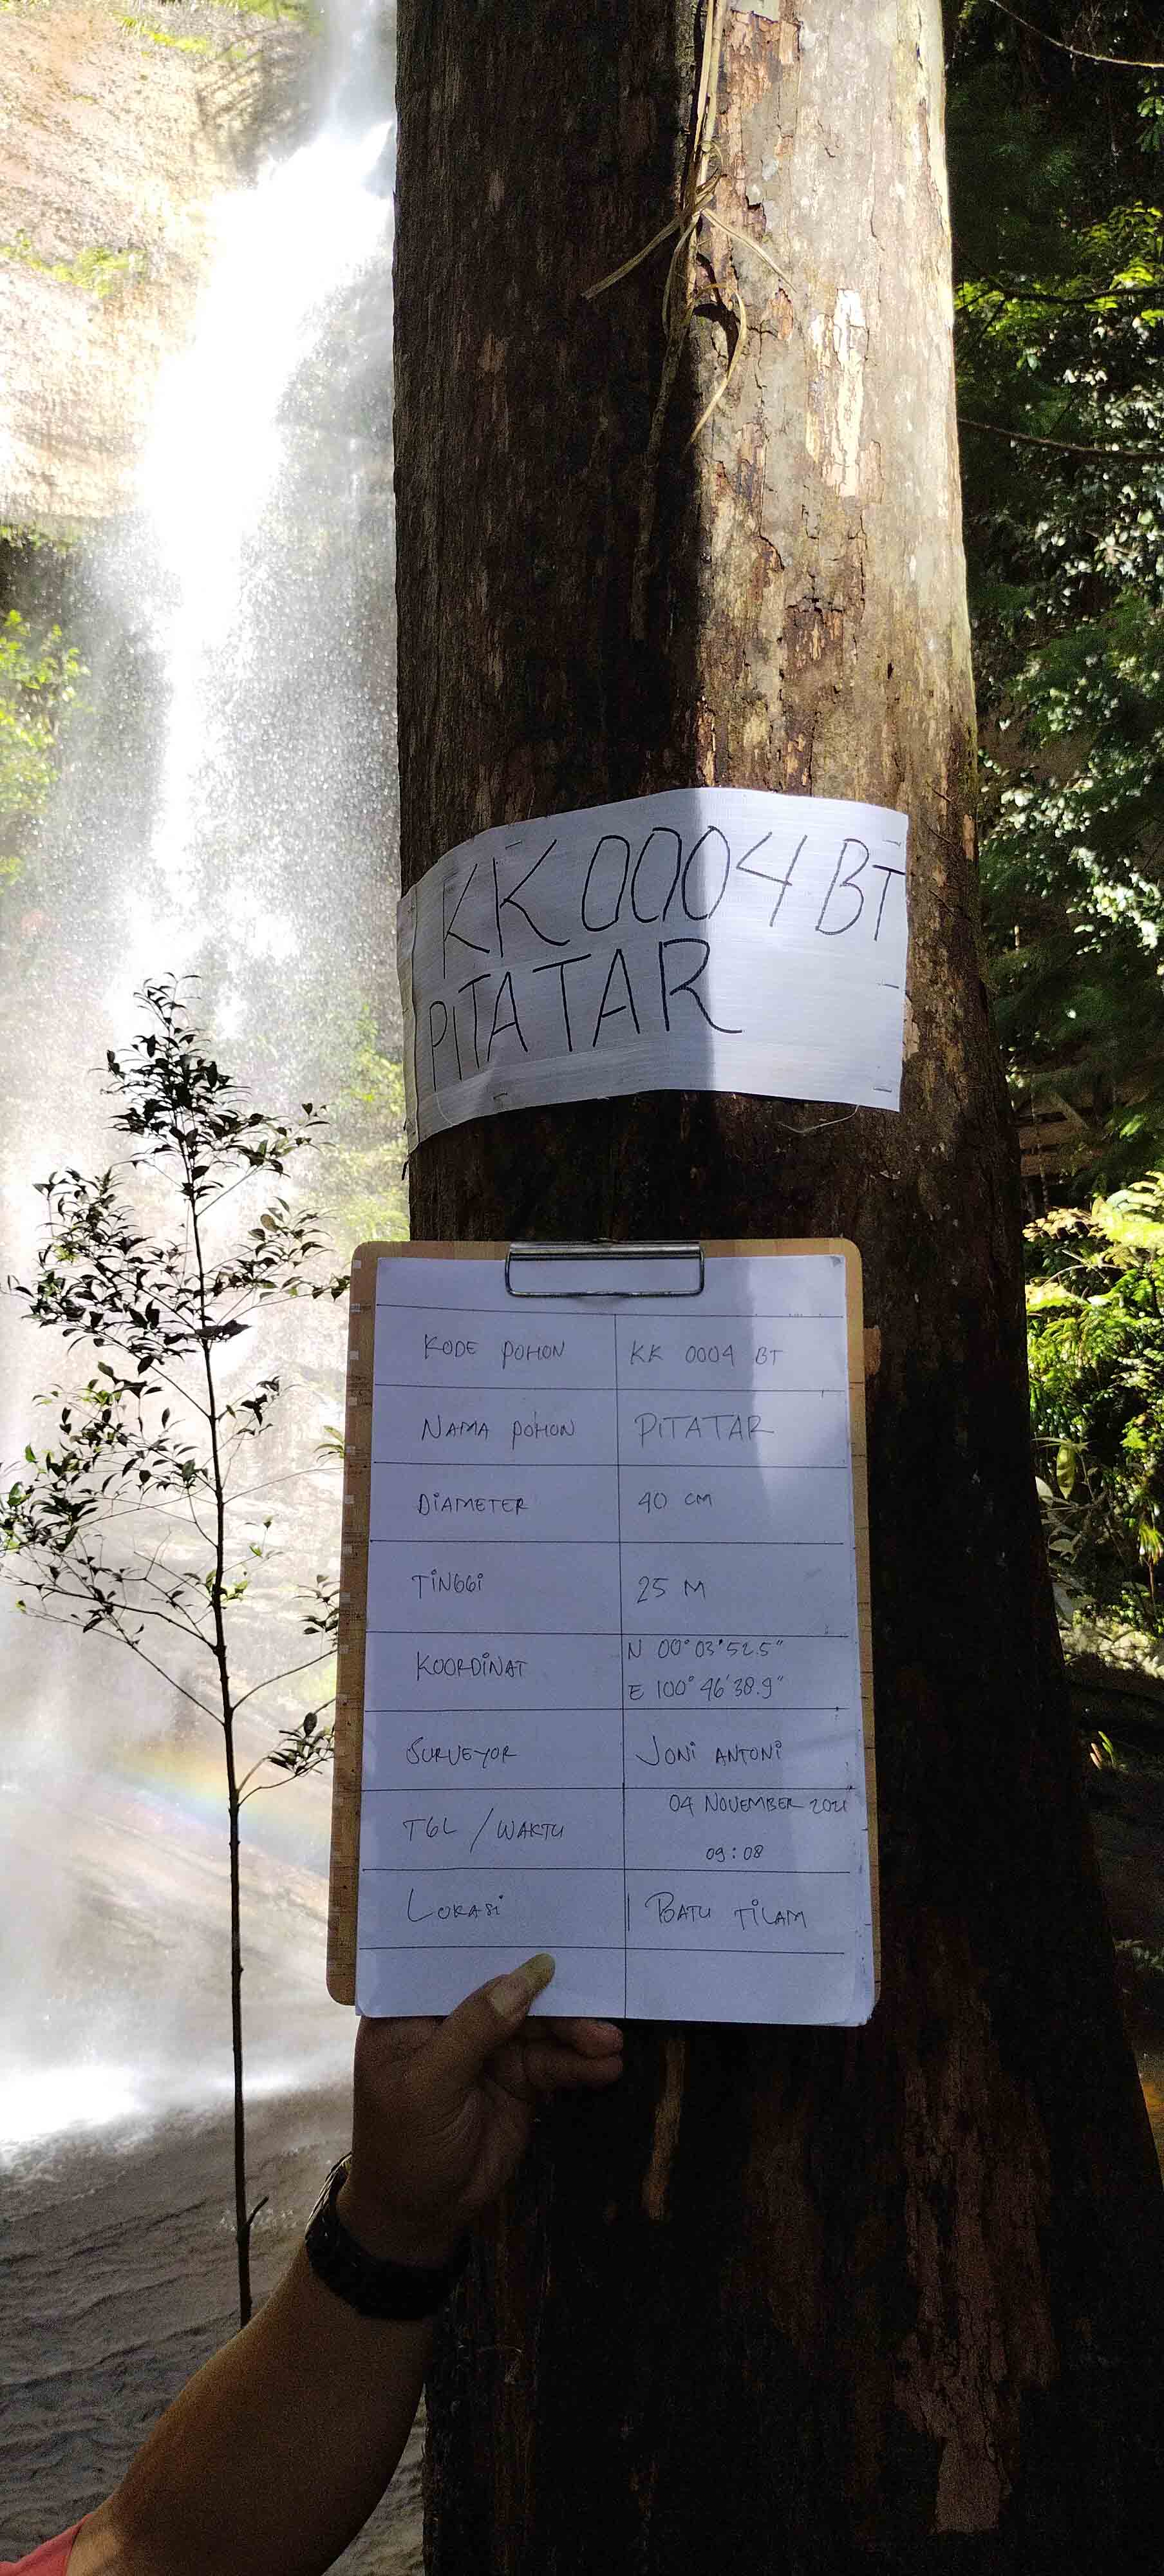 KK 0004 BT
PITATAR
KODE POHON KK 0004 BT
NAMA POHON PITATAR
DIAMETER 40 CM
TINGGI 25 M
KOORDINAT N 00° 03' 52.5"
E 100° 46' 38.9"
SURVEYOR JONI ANTONI
TGL / WAKTU 04 NOVEMBER 2021
09:08
LOKASI BATU TILAM